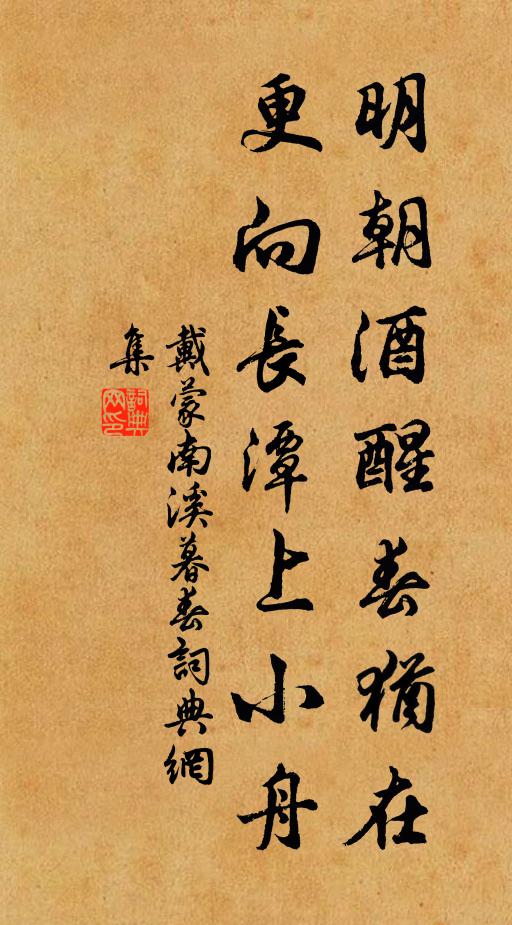 明朝酒醒春猶在
更向長潭上小舟
戴蒙南溪暮春詞典網
集
詞典網印